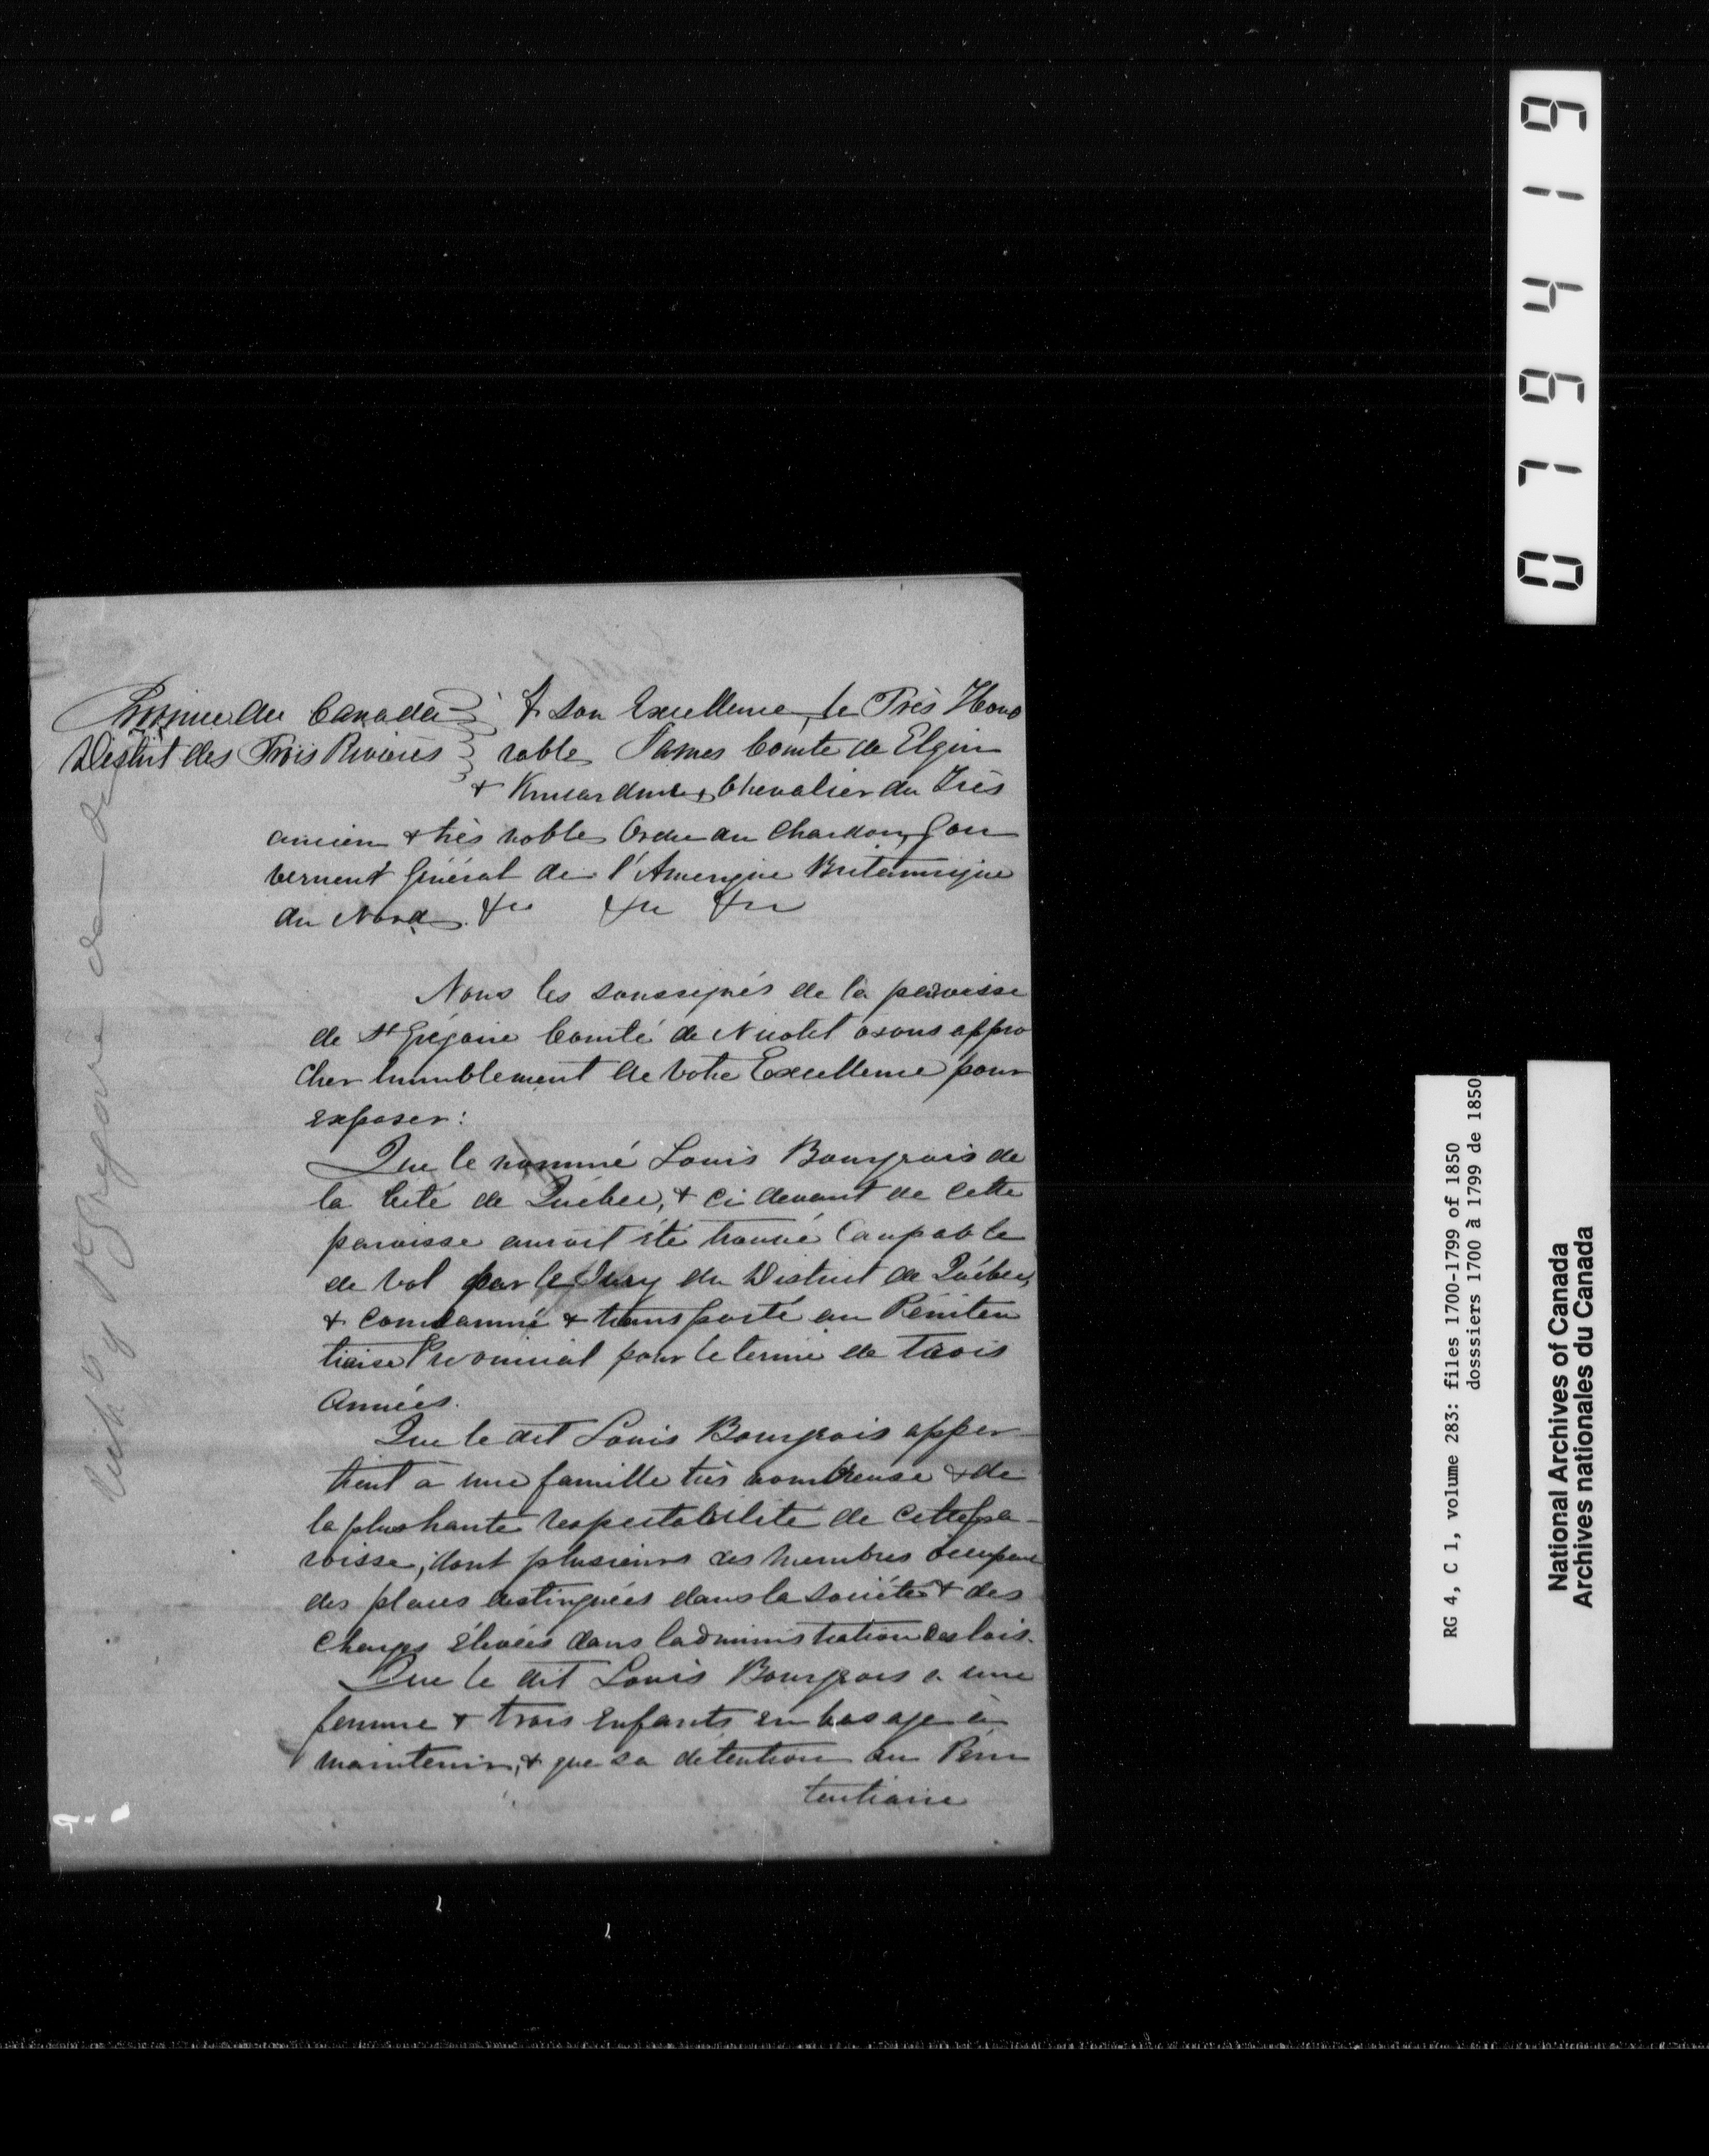 Province du Canada } A Son Excellence, le Très Hono
District des Trois Rivières } rable James Comte de Elgin
& Kincardine, Chevalier du Très
ancien & très noble Ordre du Chardon, Gou
verneur Général de l'Amerique Britannique
du Nord. &c &c &c
Nous les soussignés de la paroisse
de St Grégoire Comté de Nicolet osons appro
cher humblement de Votre Excellence pour
exposer:
Que le nommé Louis Bourgeois de
la Cité de Québec, & ci devant de cette
paroisse auroit été trouvé Coupable
de vol par le Jury du District de Québec,
& condamné & transporté au Péniten
tiaire Provincial pour le terme de trois
Années.
Que le dit Louis Bourgeois appar-
tient à une famille très nombreuse & de
la plus haute respectabilité de cette pa-
roisse, dont plusieurs des membres occupent
des places distinguées dans la société & des
Charges élevées dans l'administration des lois.
Que le dit Louis Bourgeois a une
femme & trois Enfants en bas age à
maintenir, & que sa détention au Péni
tentiaire
079419
RG 4, C 1, volume 283: files 1700-1799 of 1850
dosssiers 1700 à 1799 de 1850
National Archives of Canada
Archives nationales du Canada